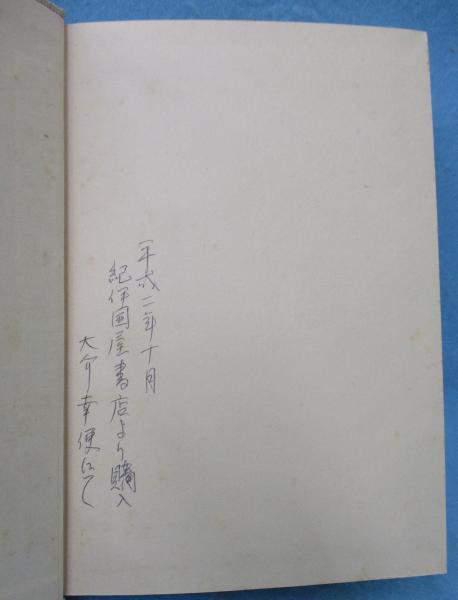 平成二年十月
紀伊国屋書店より購入
大介幸便にて